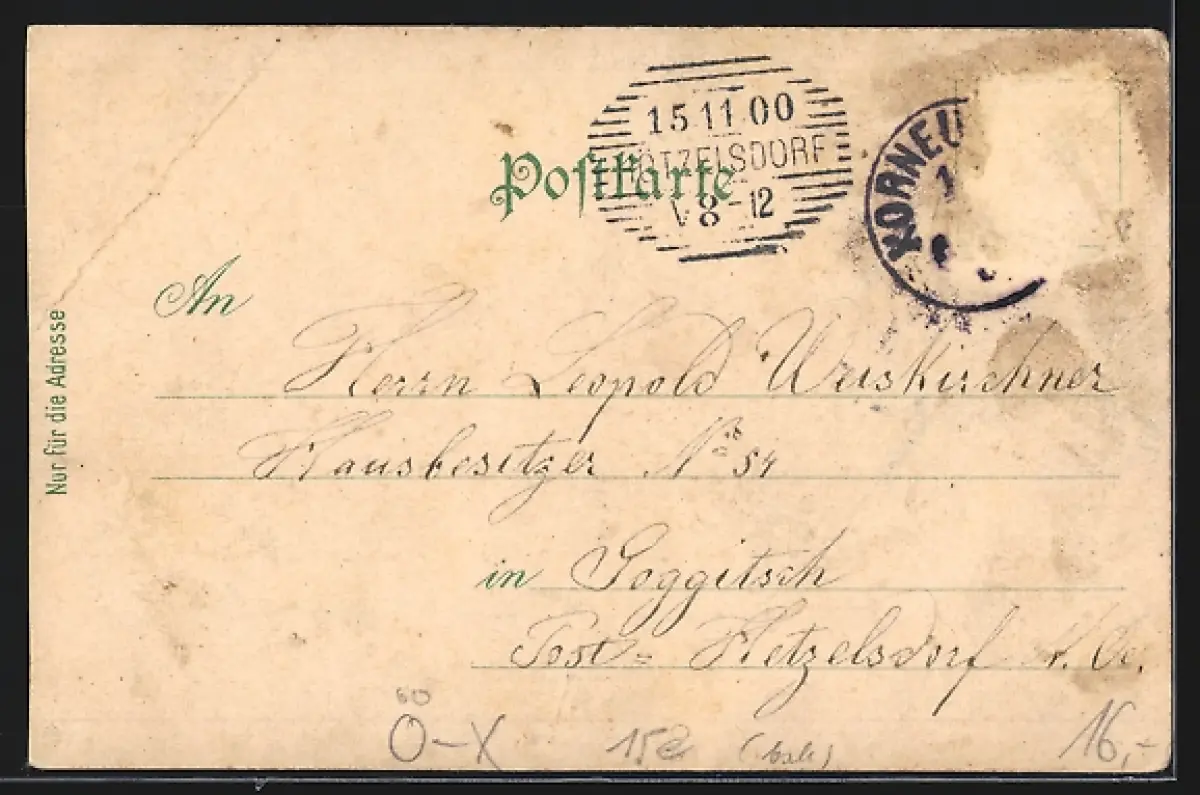 15 11 00
ÖTZELSDORF
8-12
Postkarte
KORNEU
An
Nur für die Adresse
Herrn Leopold Weiskirchner
Hausbesitzer No 54
in Goggitsch
Post= Hetzelsdorf N. Oe.
Ö-X
15
16,-